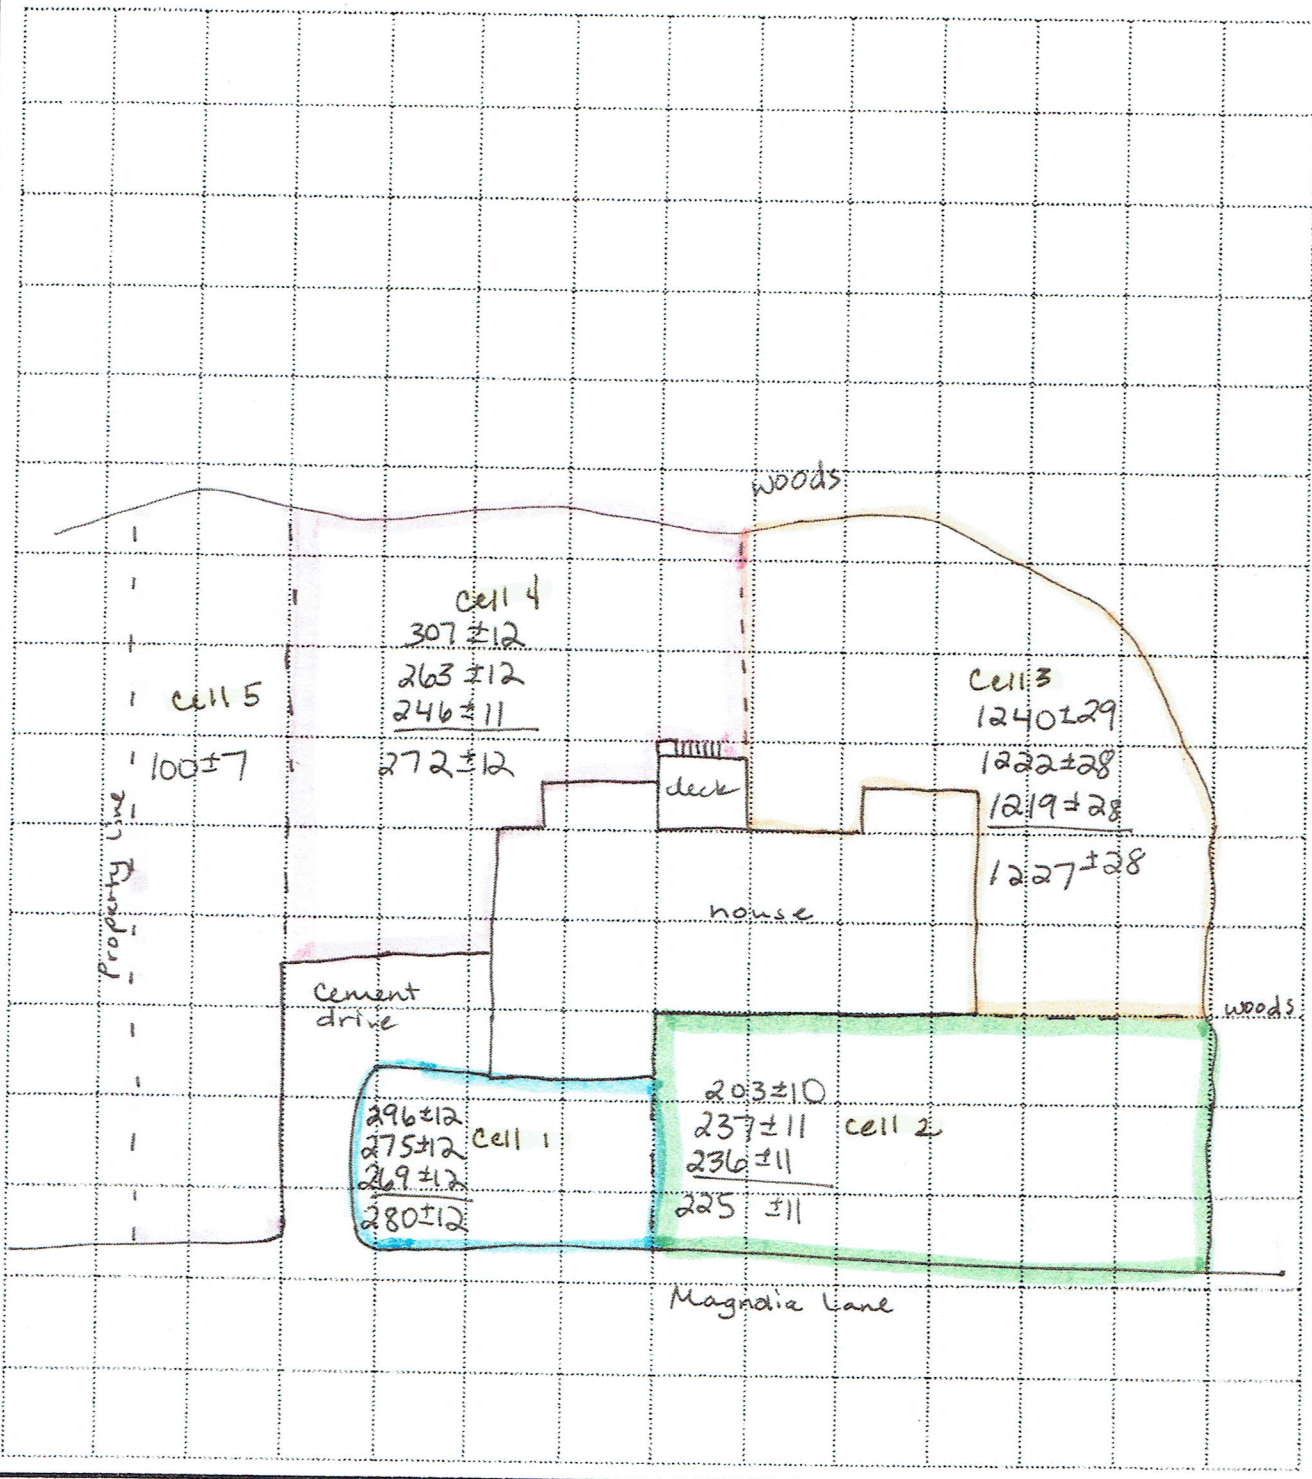 woods
cell 4
307 ±12
263 ±12
246 ±11
272 ±12
cell 5
100±7
Cell 3
1240±29
1222±28
1219±28
1227±28
deck
house
Property Line
cement
drive
woods
296±12
275±12
269±12
280±12
cell 1
203±10
237±11
236±11
225 ±11
cell 2
Magnolia Lane